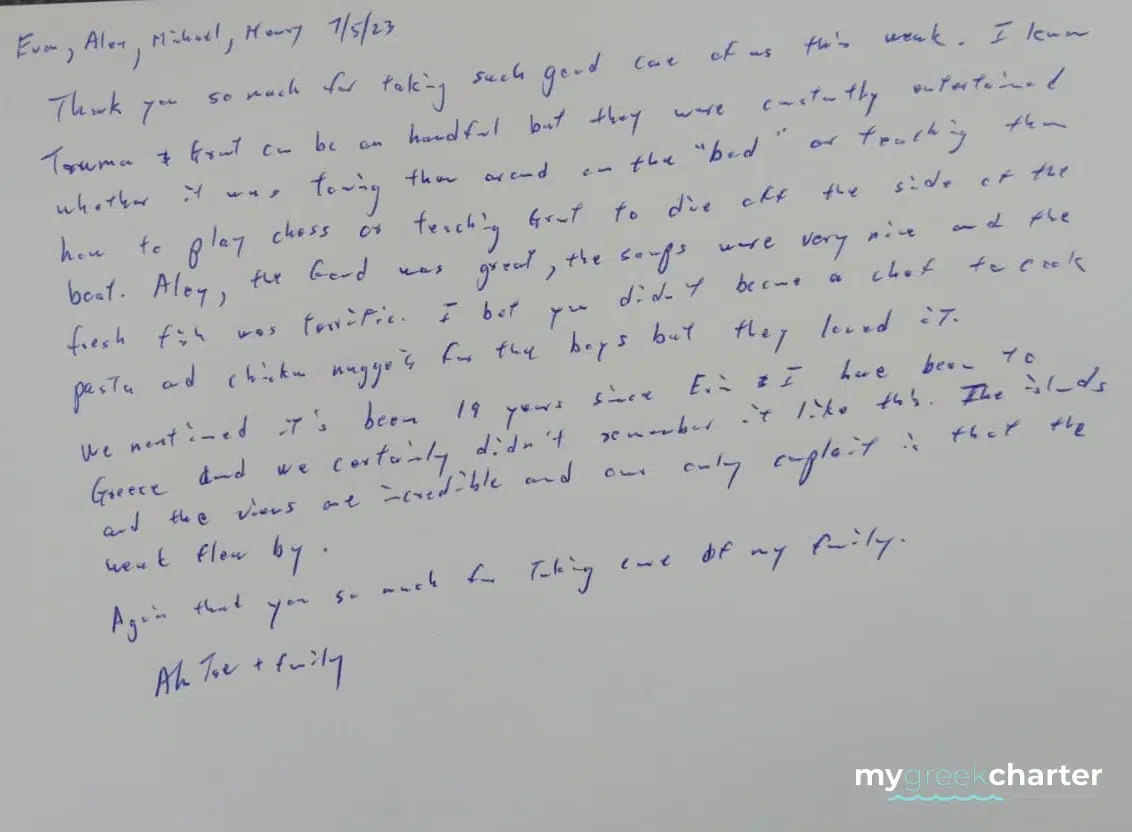 Evan, Alex, Michael, Henry 7/5/23
Thank you so much for taking such good care of us this week. I know
Truman & Grant can be an handful but they were constantly entertained
whether it was towing them around on the "bed" or teaching them
how to play chess or teaching Grant to dive off the side of the
boat. Alex, the food was great, the soups were very nice and the
fresh fish was terrific. I bet you didn't become a chef to cook
pasta and chicken nuggets for the boys but they loved it.
We mentioned it's been 19 years since Erin & I have been to
Greece and we certainly didn't remember it like this. The islands
and the views are incredible and our only complaint is that the
week flew by.
Again thank you so much for taking care of my family.
+ family
mygreekcharter